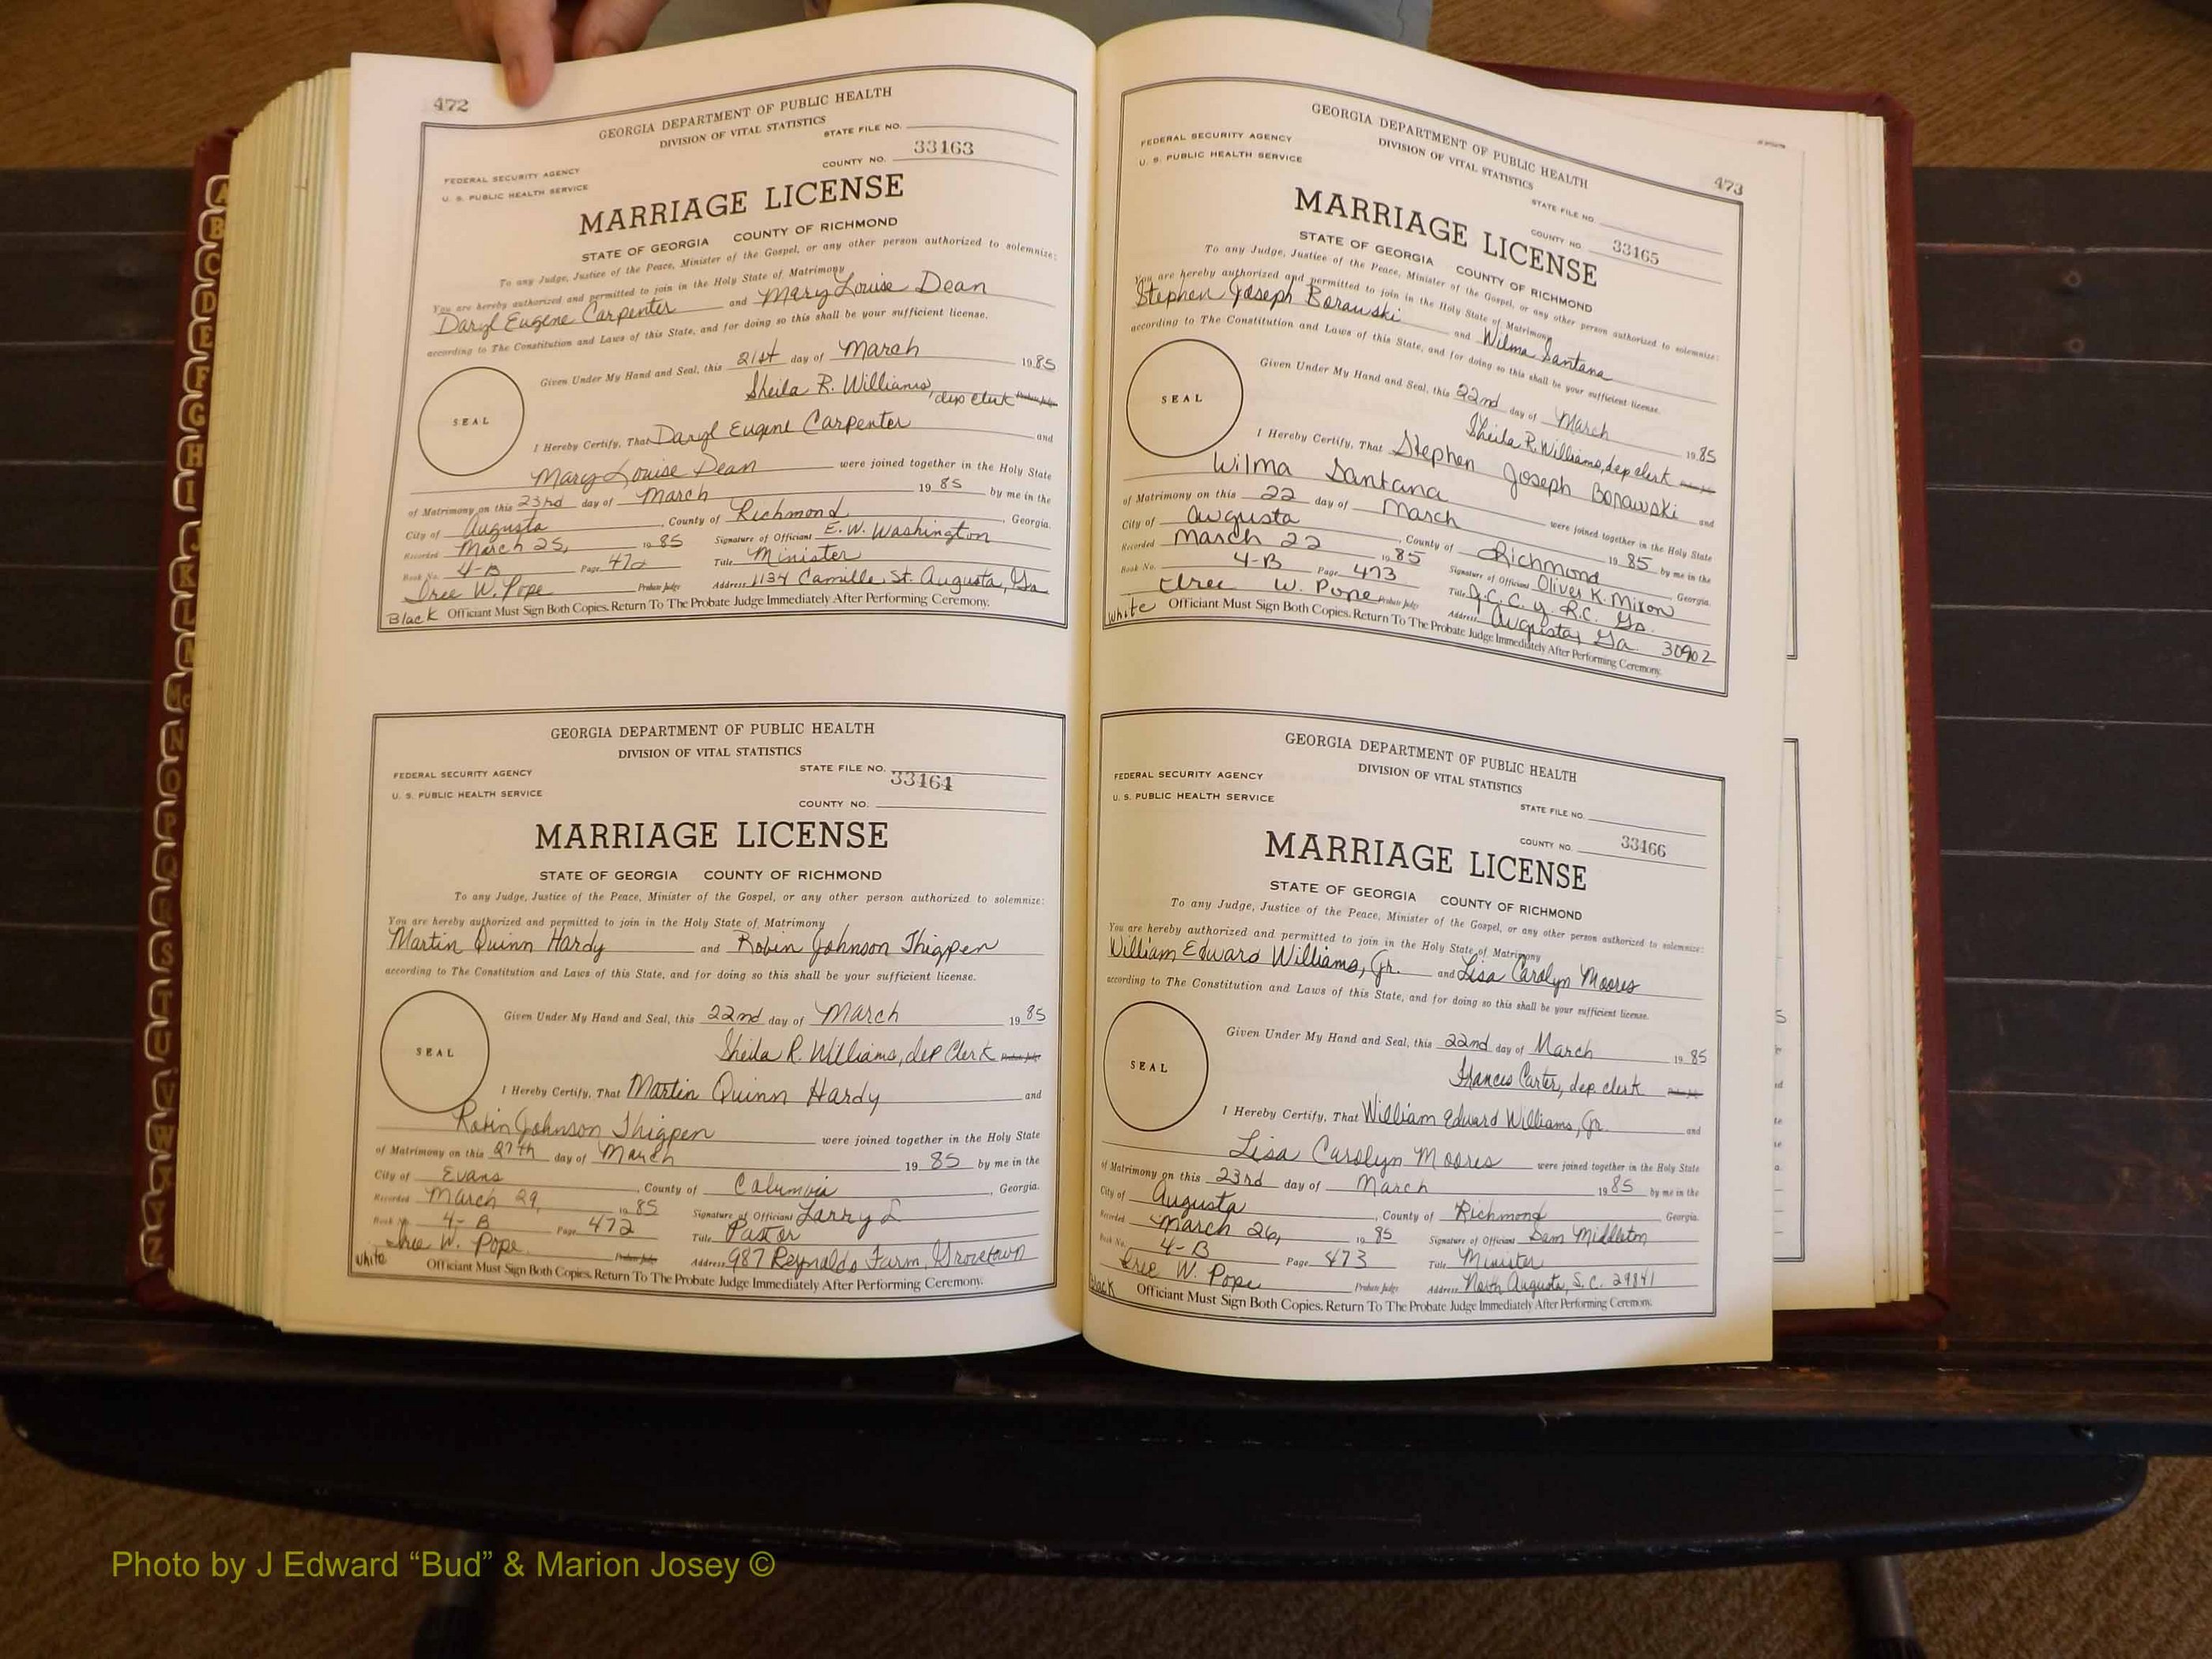 472
GEORGIA DEPARTMENT OF PUBLIC HEALTH
DIVISION OF VITAL STATISTICS
STATE FILE NO.
COUNTY NO. 33163
FEDERAL SECURITY AGENCY
U. S. PUBLIC HEALTH SERVICE
MARRIAGE LICENSE
STATE OF GEORGIA COUNTY OF RICHMOND
To any Judge, Justice of the Peace, Minister of the Gospel, or any other person authorized to solemnize:
You are hereby authorized and permitted to join in the Holy State of Matrimony
Daryl Eugene Carpenter and Mary Louise Dean
according to The Constitution and Laws of this State, and for doing so this shall be your sufficient license.
Given Under My Hand and Seal, this 21st day of March 1985
Sheila R. Williams, dep clerk Probate Judge
SEAL
I Hereby Certify, That Daryl Eugene Carpenter and
Mary Louise Dean were joined together in the Holy State
of Matrimony on this 23rd day of March 1985 by me in the
City of Augusta, County of Richmond, Georgia.
Recorded March 25, 1985 Signature of Officiant E. W. Washington
Book No. 4-B Page 472 Title Minister
Iree W. Pope Probate Judge Address 1134 Camille St. Augusta, Ga
Black Officiant Must Sign Both Copies. Return To The Probate Judge Immediately After Performing Ceremony.
GEORGIA DEPARTMENT OF PUBLIC HEALTH
DIVISION OF VITAL STATISTICS
STATE FILE NO. 33164
FEDERAL SECURITY AGENCY
U. S. PUBLIC HEALTH SERVICE
COUNTY NO.
MARRIAGE LICENSE
STATE OF GEORGIA COUNTY OF RICHMOND
To any Judge, Justice of the Peace, Minister of the Gospel, or any other person authorized to solemnize:
You are hereby authorized and permitted to join in the Holy State of Matrimony
Martin Quinn Hardy and Robin Johnson Thigpen
according to The Constitution and Laws of this State, and for doing so this shall be your sufficient license.
Given Under My Hand and Seal, this 22nd day of March 1985
Sheila R. Williams, dep Clerk Probate Judge
SEAL
I Hereby Certify, That Martin Quinn Hardy and
Robin Johnson Thigpen were joined together in the Holy State
of Matrimony on this 27th day of March 1985 by me in the
City of Evans, County of Columbia, Georgia.
Recorded March 29, 1985 Signature of Officiant Larry L
Book No. 4-B Page 472 Title Pastor
Iree W. Pope Probate Judge Address 987 Reynolds Farm, Grovetown
White Officiant Must Sign Both Copies. Return To The Probate Judge Immediately After Performing Ceremony.
473
GEORGIA DEPARTMENT OF PUBLIC HEALTH
DIVISION OF VITAL STATISTICS
FEDERAL SECURITY AGENCY
U. S. PUBLIC HEALTH SERVICE
STATE FILE NO.
COUNTY NO. 33165
MARRIAGE LICENSE
STATE OF GEORGIA COUNTY OF RICHMOND
To any Judge, Justice of the Peace, Minister of the Gospel, or any other person authorized to solemnize:
You are hereby authorized and permitted to join in the Holy State of Matrimony
Stephen Joseph Borawski and Wilma Santana
according to The Constitution and Laws of this State, and for doing so this shall be your sufficient license.
Given Under My Hand and Seal, this 22nd day of March 1985
Sheila R. Williams, dep clerk
SEAL
I Hereby Certify, That Stephen Joseph Borawski and
Wilma Santana were joined together in the Holy State
of Matrimony on this 22 day of March 1985 by me in the
City of Augusta, County of Richmond Georgia.
Recorded March 22 1985 Signature of Officiant Oliver K. Mixon
Book No. 4-B Page 473 Title J.C.C. of R.C. Ga.
Iree W. Pope Probate Judge Address Augusta, Ga. 30902
White Officiant Must Sign Both Copies. Return To The Probate Judge Immediately After Performing Ceremony.
GEORGIA DEPARTMENT OF PUBLIC HEALTH
DIVISION OF VITAL STATISTICS
FEDERAL SECURITY AGENCY
U. S. PUBLIC HEALTH SERVICE
STATE FILE NO.
COUNTY NO. 33166
MARRIAGE LICENSE
STATE OF GEORGIA COUNTY OF RICHMOND
To any Judge, Justice of the Peace, Minister of the Gospel, or any other person authorized to solemnize:
You are hereby authorized and permitted to join in the Holy State of Matrimony
William Edward Williams, Jr. and Lisa Carolyn Moores
according to The Constitution and Laws of this State, and for doing so this shall be your sufficient license.
Given Under My Hand and Seal, this 22nd day of March 1985
Frances Carter, dep clerk
SEAL
I Hereby Certify, That William Edward Williams, Jr. and
Lisa Carolyn Moores were joined together in the Holy State
of Matrimony on this 23rd day of March 1985 by me in the
City of Augusta, County of Richmond Georgia.
Recorded March 26, 1985 Signature of Officiant Sam Middleton
Book No. 4-B Page 473 Title Minister
Iree W. Pope Probate Judge Address North Augusta, S.C. 29841
Black Officiant Must Sign Both Copies. Return To The Probate Judge Immediately After Performing Ceremony.
Photo by J Edward “Bud” & Marion Josey ©